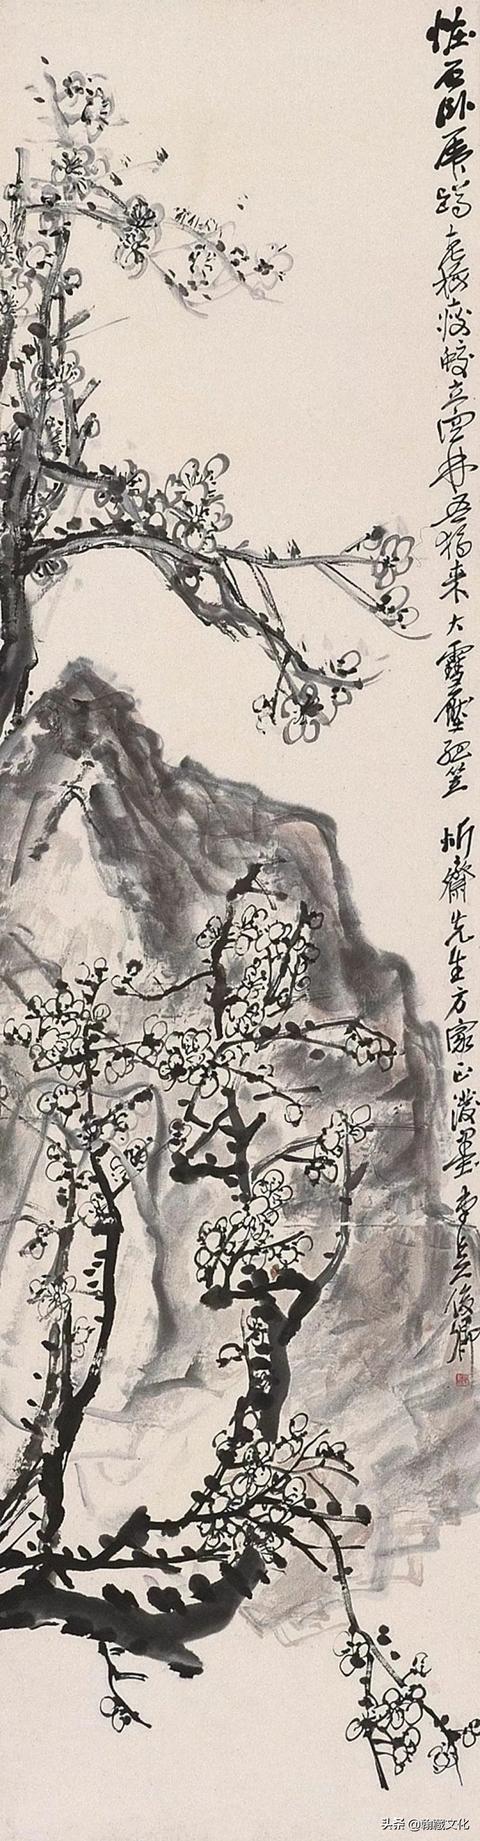 怪石卧虎 老梅瘦蛟立 空林吾獨来 大雪壓孤笠 忻齋先生方家正 潑墨 吳俊卿
头条 @翰藏文化